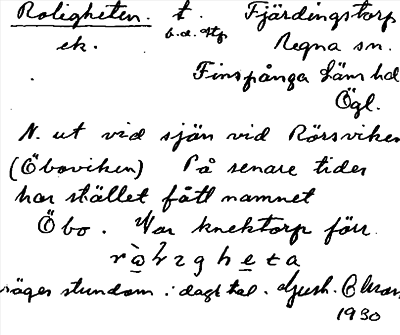 Roligheten. t. Fjärdingstorp
ek. b.d. Regna sn.
Finspånga läns hd
Ögl.
N. ut vid sjön vid Rörsviken
(Öboviken) På senare tider
har stället fått namnet
Öbo. Var knektorp förr.
säges stundom i dagl tal.
1930